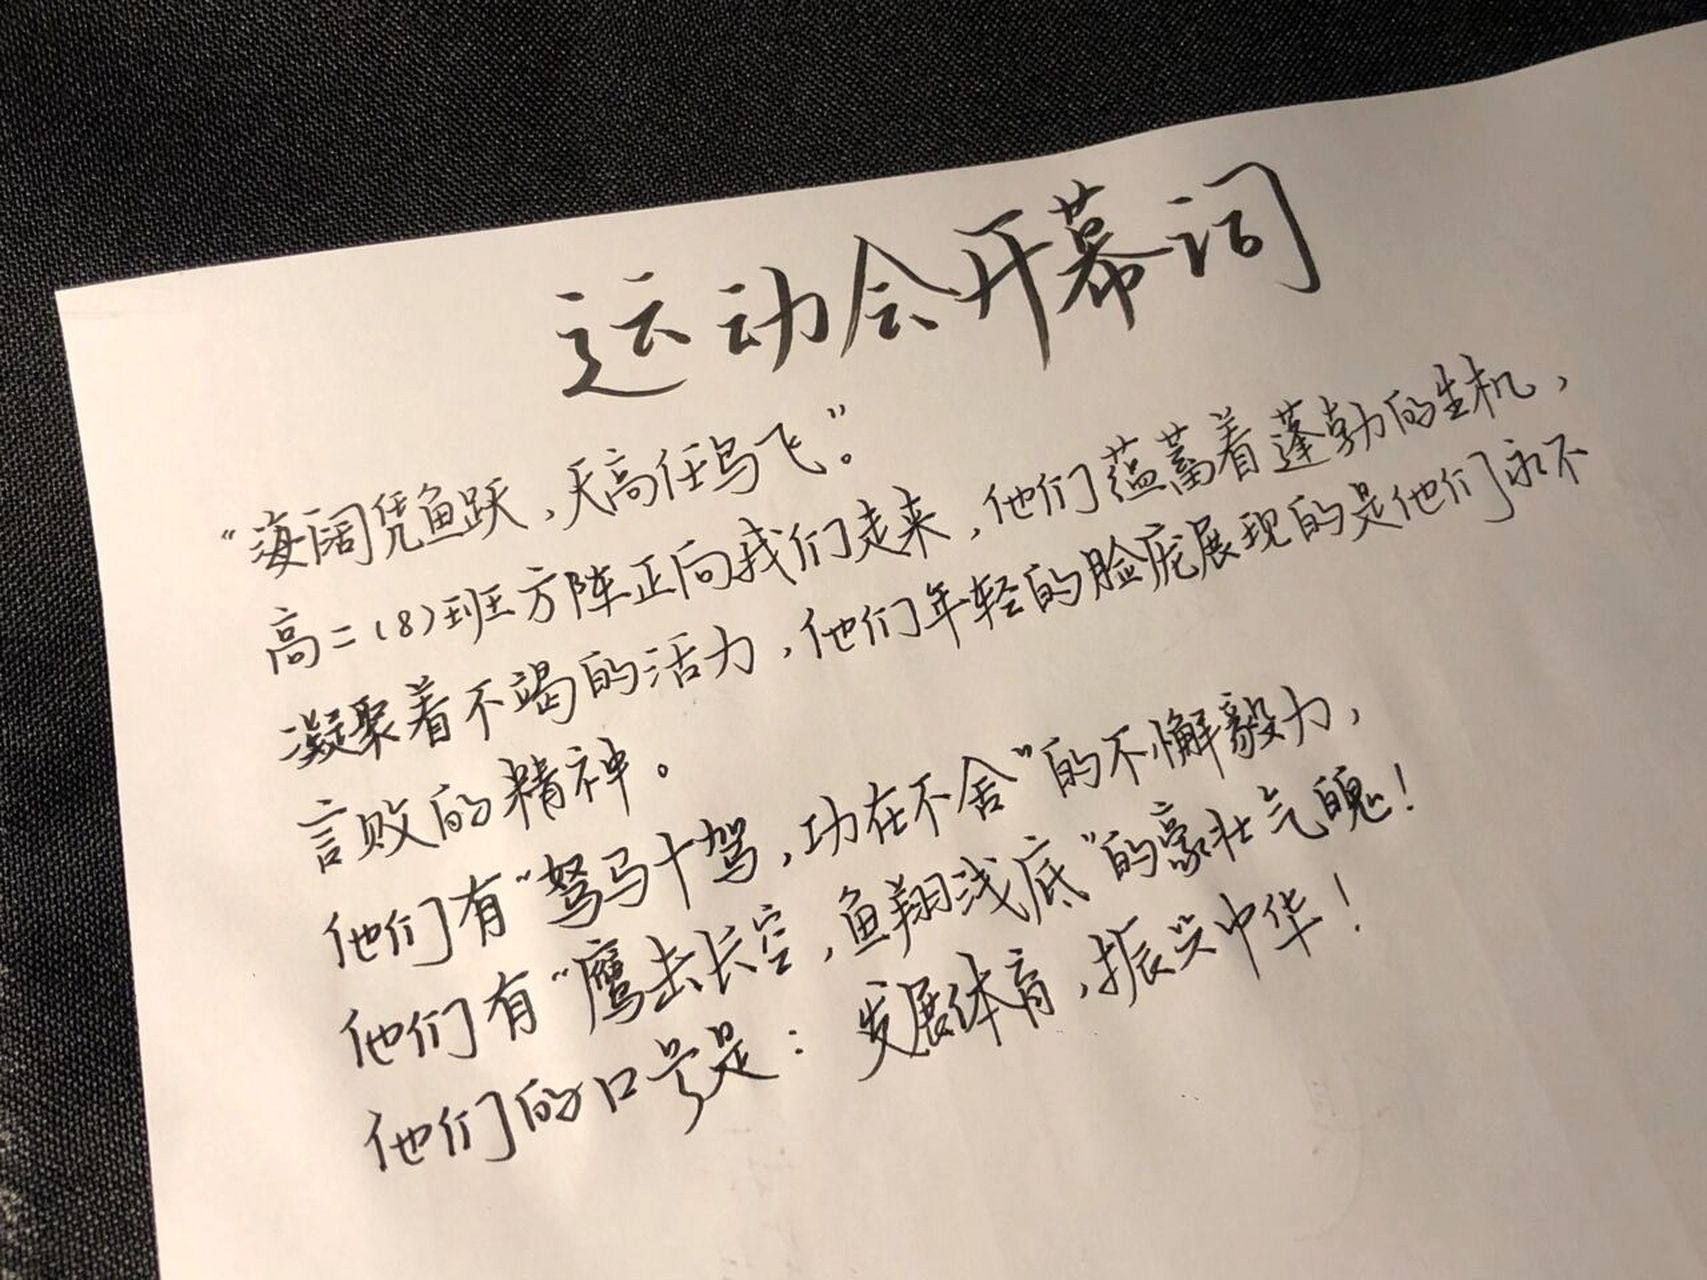 运动会开幕词
“海阔凭鱼跃，天高任鸟飞”。
高二（8）班方阵正向我们走来，他们蕴蓄着蓬勃的生机，
凝聚着不竭的活力，他们年轻的脸庞展现的是他们永不
言败的精神。
他们有“驽马十驾，功在不舍”的不懈毅力，
他们有“鹰击长空，鱼翔浅底”的豪壮气魄！
他们的口号是：发展体育，振兴中华！